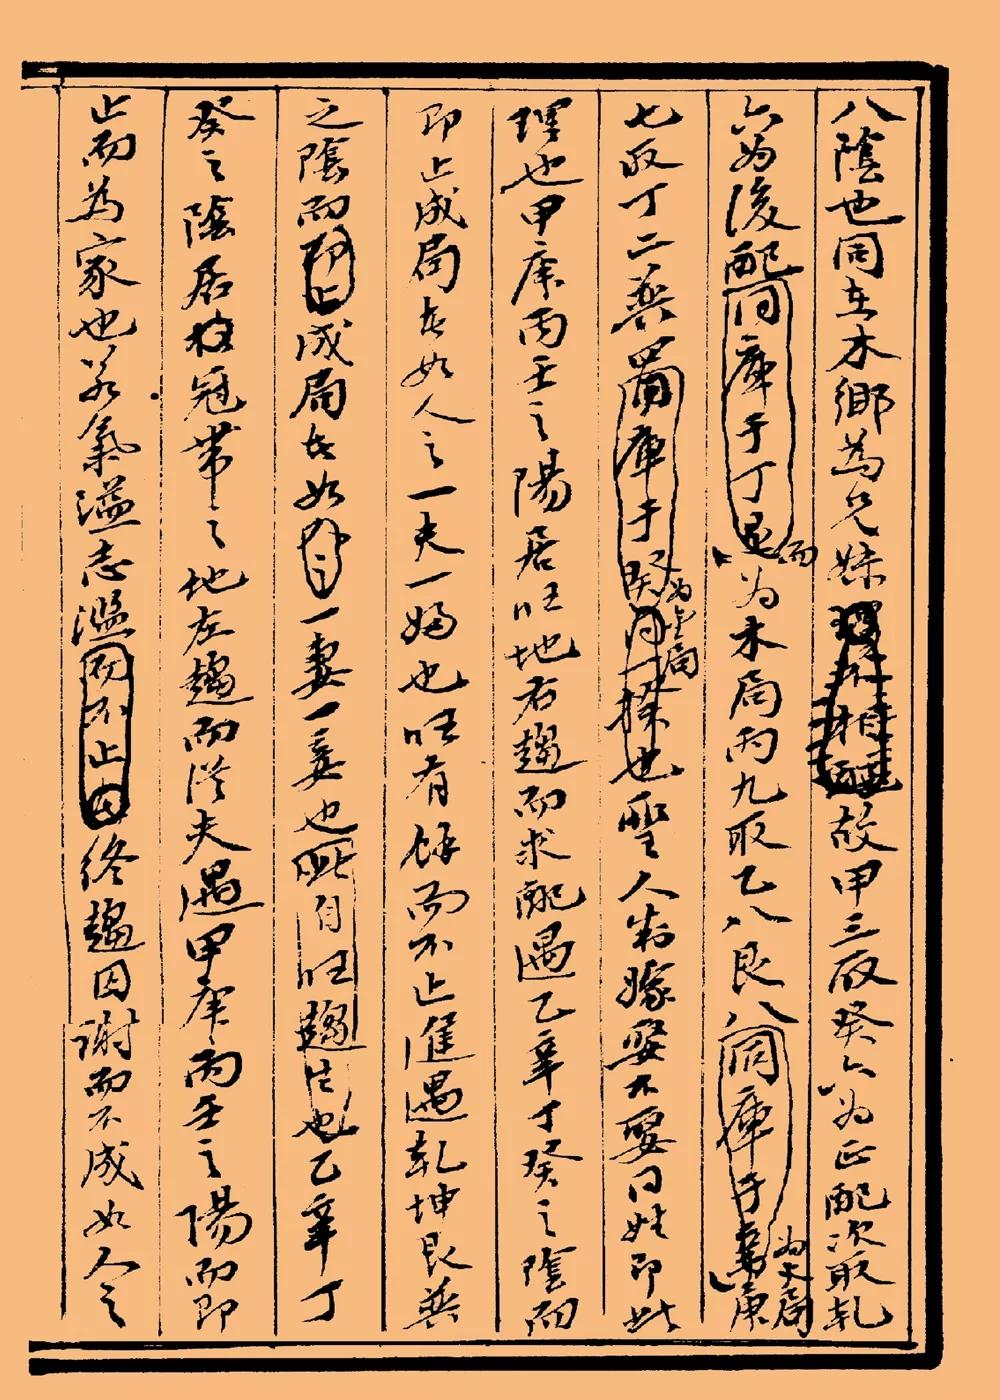 八陰也同在木鄉為兄妹故甲三取癸六為正配次取乾
六為後配同庫于丁是而為木局丙九取乙八艮八同庫于為火局庚
七取丁二巽四同庫于癸為金局同一揆也聖人於嫁娶不娶同姓即此
理也甲庚丙壬之陽居旺地右趨而求配遇乙辛丁癸之陰而
即止成局者如人之一夫一婦也旺有餘而不止進遇乾坤艮巽
之陰而即止成局者如人之一妻一妾也此自旺趨生也乙辛丁
癸之陰居於冠帶之地左趨而從夫遇甲庚丙壬之陽而即
止而為家也若氣溢志濫而不止因終趨因謝而不成如人之